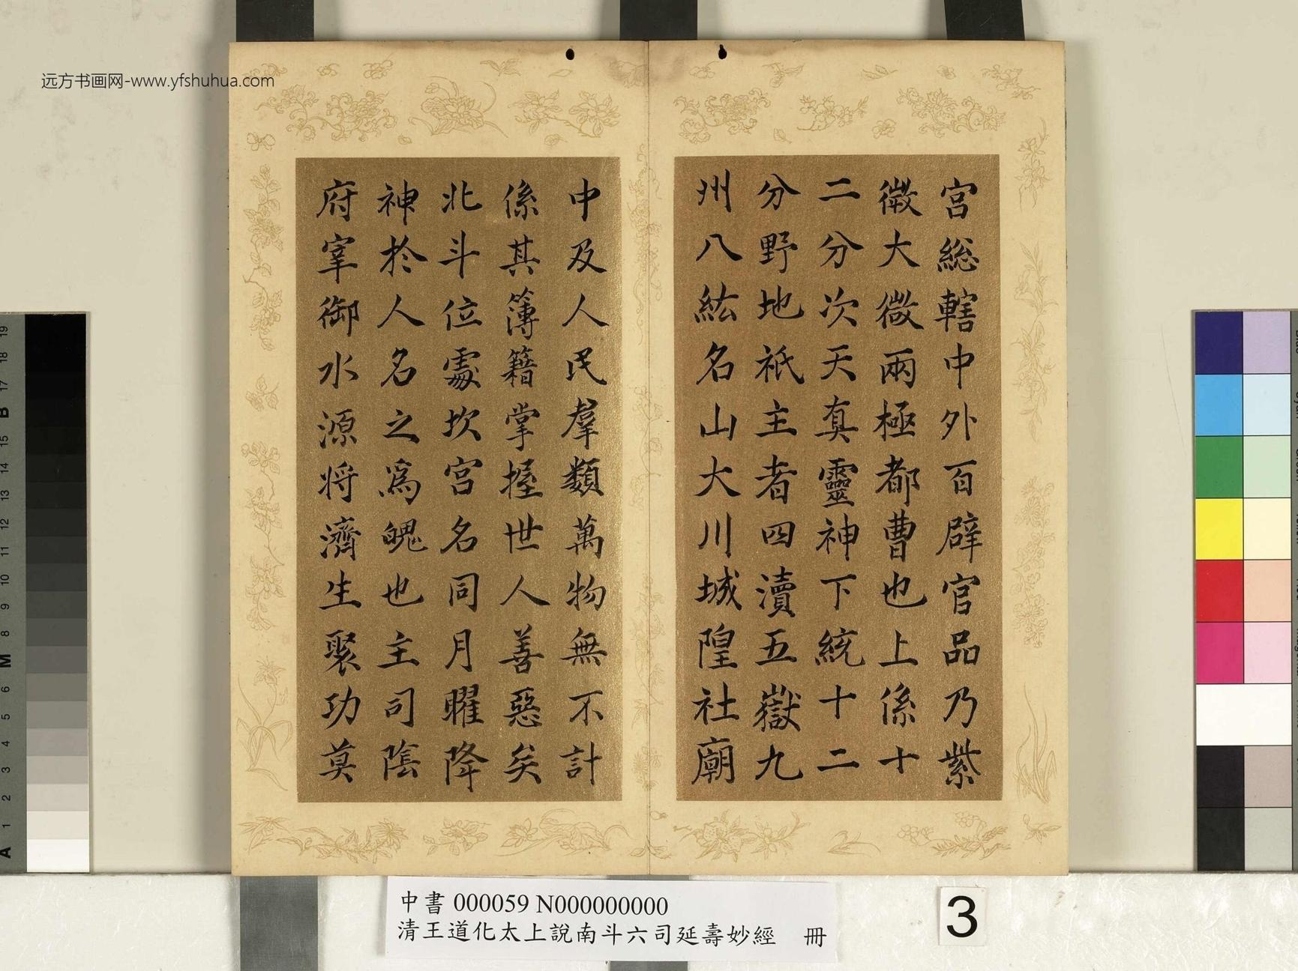 远方书画网-www.yfshuhua.com
宮總轄中外百辟官品乃紫
微大微兩極都曹也上係十
二分次天真靈神下統十二
分野地祇主者四瀆五嶽九
州八紘名山大川城隍社廟
中及人民羣類萬物無不計
係其簿籍掌握世人善惡矣
北斗位處坎宮名同月曜降
神於人名之為魄也主司陰
府宰御水源將濟生聚功莫
中書 000059 N000000000
清王道化太上說南斗六司延壽妙經 冊
3
19
18
17
B
16
15
14
13
12
11
10
9
8
M
7
6
5
4
3
2
1
A